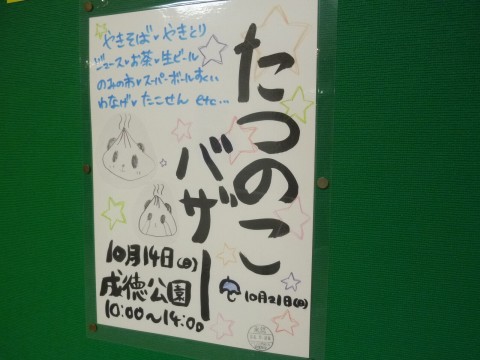 たつのこ
バザー
やきそば♥やきとり
ジュース♥お茶♥生ビール
のみの市♥スーパーボールすくい
わなげ♥たこせん etc…
10月14日(日)
成徳公園
10:00〜14:00
10月21日(日)